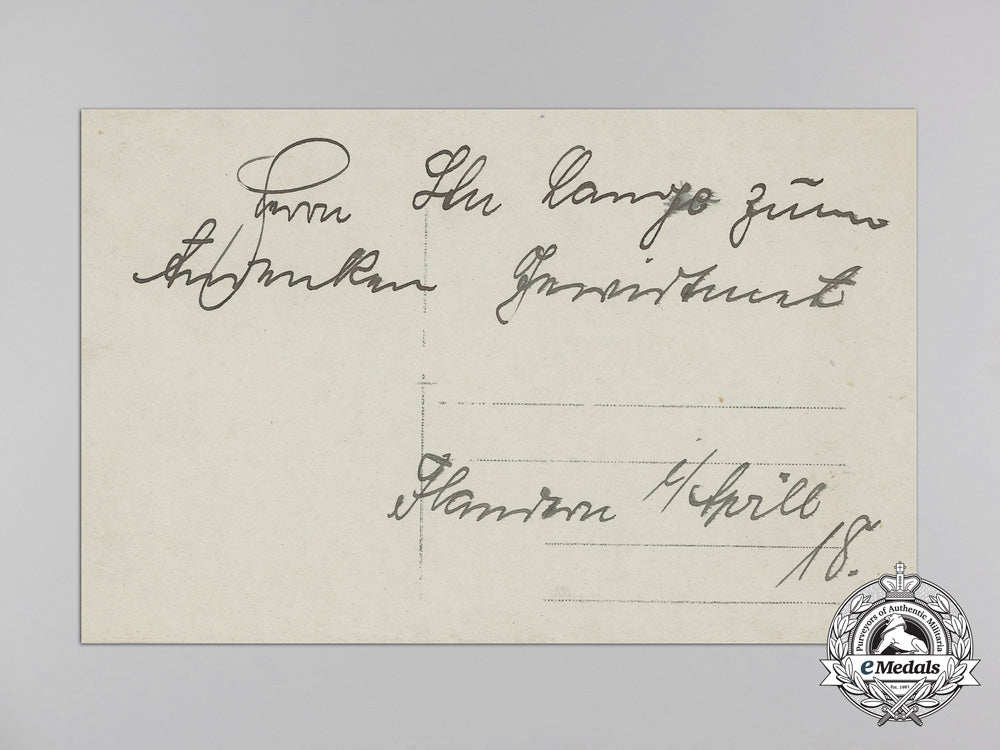 Herrn Ltn Lange zum
Andenken Gewidtmet
Flandern i/Aprill
18.
Purveyors of Authentic Militaria
eMedals
Est. 1983